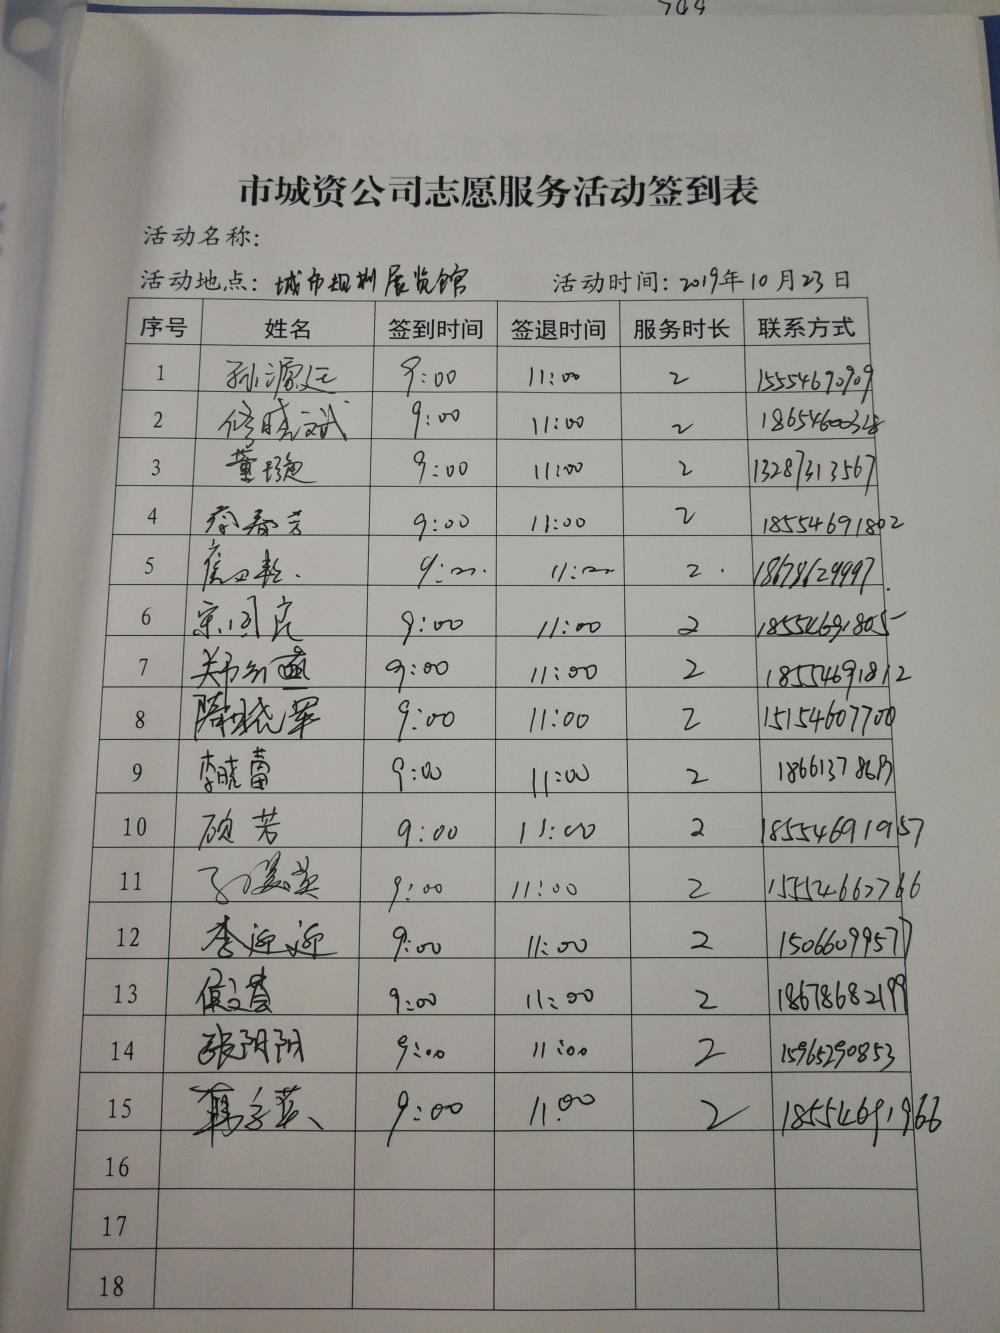 市城资公司志愿服务活动签到表
活动名称:
活动地点: 城市规划展览馆 活动时间: 2019年10月23日
序号 姓名 签到时间 签退时间 服务时长 联系方式
1 9:00 11:00 2 15554690909
2 修晓斌 9:00 11:00 2 18654600318
3 董璇 9:00 11:00 2 13287313567
4 秦春芳 9:00 11:00 2 18554691802
5 9:00 11:00 2 18678629997
6 宋国良 9:00 11:00 2 18554691805
7 9:00 11:00 2 18554691812
8 隋晓军 9:00 11:00 2 15154607700
9 李晓蕾 9:00 11:00 2
10 顾芳 9:00 11:00 2 18554691957
11 9:00 11:00 2 15554662766
12 李迎迎 9:00 11:00 2 15066099577
13 9:00 11:00 2 18678682199
14 张阳阳 9:00 11:00 2 15965290853
15 9:00 11:00 2 18554691966
16
17
18